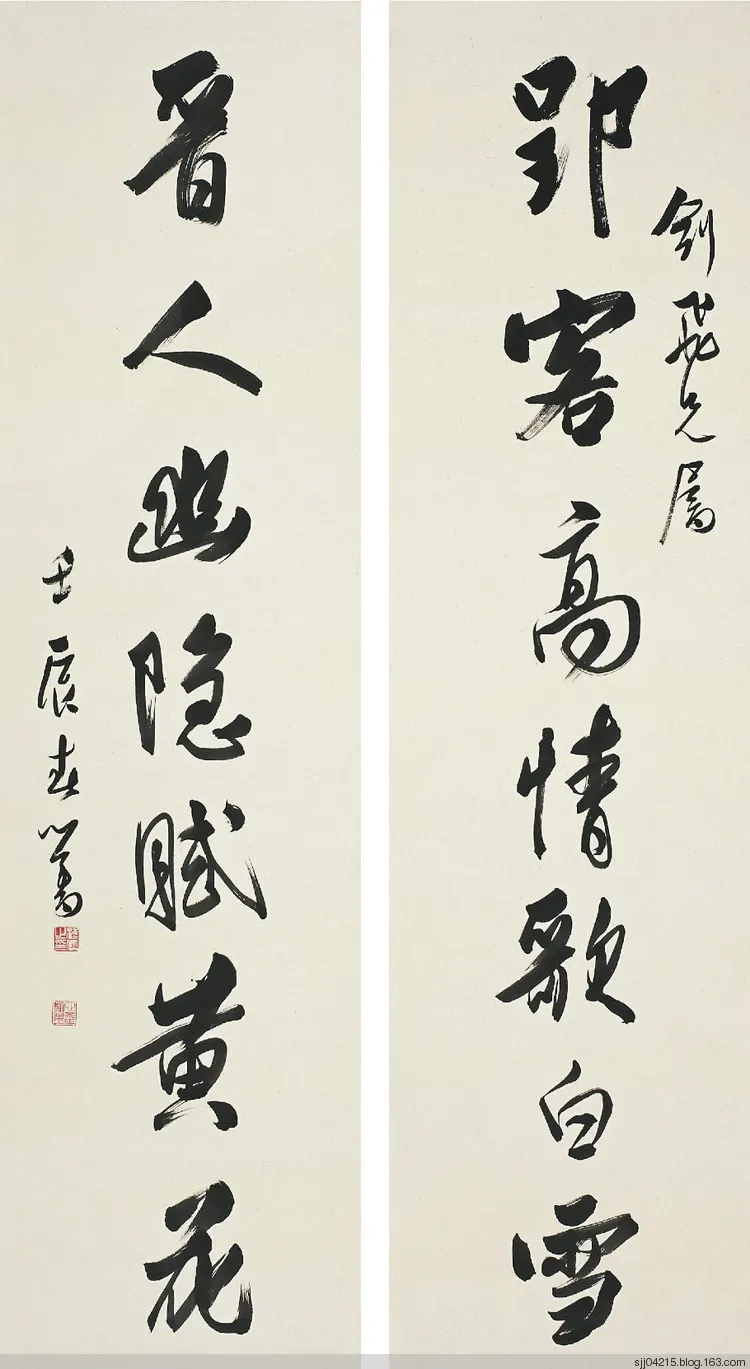 郢客高情歌白雪
劍飛兄属
晋人幽隐赋黄花
壬辰春心畬
sjj04215.blog.163.com